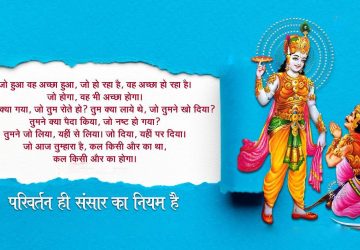 जो हुआ वह अच्छा हुआ, जो हो रहा है, वह अच्छा हो रहा है।
जो होगा, वह भी अच्छा होगा।
क्या गया, जो तुम रोते हो? तुम क्या लाये थे, जो तुमने खो दिया?
तुमने क्या पैदा किया, जो नष्ट हो गया?
तुमने जो लिया, यहीं से लिया। जो दिया, यहीं पर दिया।
जो आज तुम्हारा है, कल किसी और का था,
कल किसी और का होगा।
परिवर्तन ही संसार का नियम है